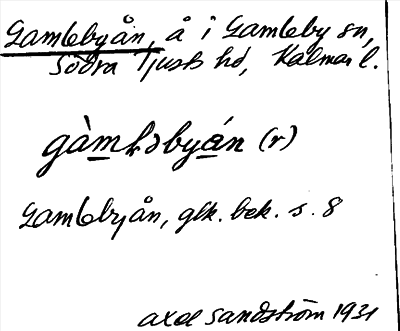 Gamlebyån, å i Gamleby sn,
Södra Tjusts hd, Kalmar l.
gàmləbyán (r)
Gamlebyån, glk. bek. s. 8
Axel Sandström 1931